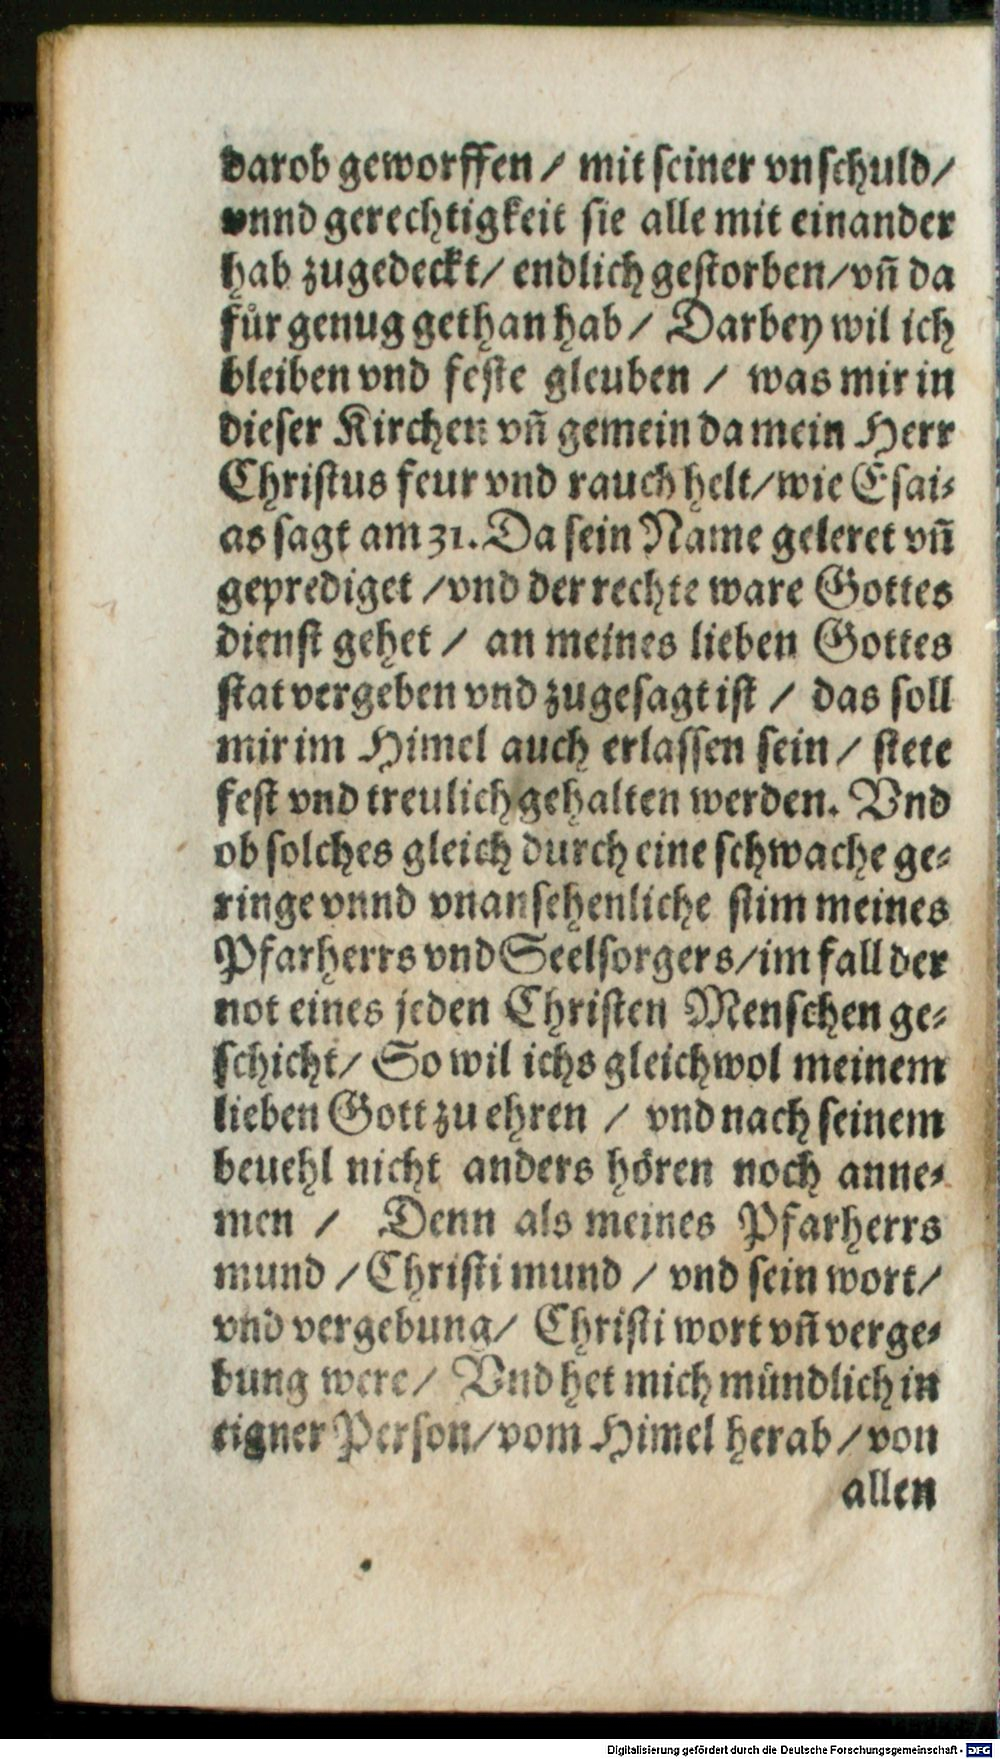 darob geworffen / mit seiner vnschuld /
vnnd gerechtigkeit sie alle mit einander
hab zugedeckt / endlich gestorben / vñ da
fuͤr genug gethan hab / Darbey wil ich
bleiben vnd feste gleuben / was mir in
dieser Kirchen vñ gemein da mein Herr
Christus feur vnd rauch helt / wie Esai⸗
as sagt am 31. Da sein Name geleret vñ
geprediget / vnd der rechte ware Gottes
dienst gehet / an meines lieben Gottes
stat vergeben vnd zugesagt ist / das soll
mir im Himel auch erlassen sein / stete
fest vnd treulich gehalten werden. Vnd
ob solches gleich durch eine schwache ge⸗
ringe vnnd vnansehenliche stim meines
Pfarherrs vnd Seelsorgers / im fall der
not eines jeden Christen Menschen ge⸗
schicht / So wil ichs gleichwol meinem
lieben Gott zu ehren / vnd nach seinem
beuehl nicht anders hoͤren noch anne⸗
men / Denn als meines Pfarherrs
mund / Christi mund / vnd sein wort /
vnd vergebung / Christi wort vñ verge⸗
bung were / Vnd het mich muͤndlich in
eigner Person / vom Himel herab / von
allen
Digitalisierung gefördert durch die Deutsche Forschungsgemeinschaft - DFG